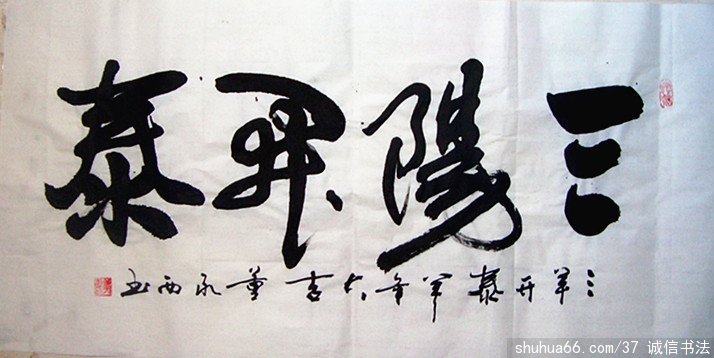 三陽開泰
三羊开泰羊年大吉董永西書
shuhua66.com/37 诚信书法